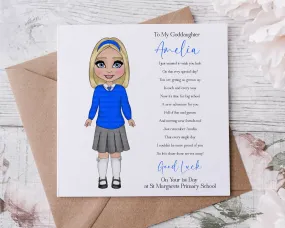 To My Goddaughter
Amelia
I just wanted to wish you luck
On this very special day!
You are getting so grown up
In each and every way
Now it's time for big school
A new adventure for you
Full of fun and games
And meeting new friends too!
Just remember Amelia
That every single day
I couldn't be more proud of you
Good Luck
On Your 1st Day
at St Margarets Primary School